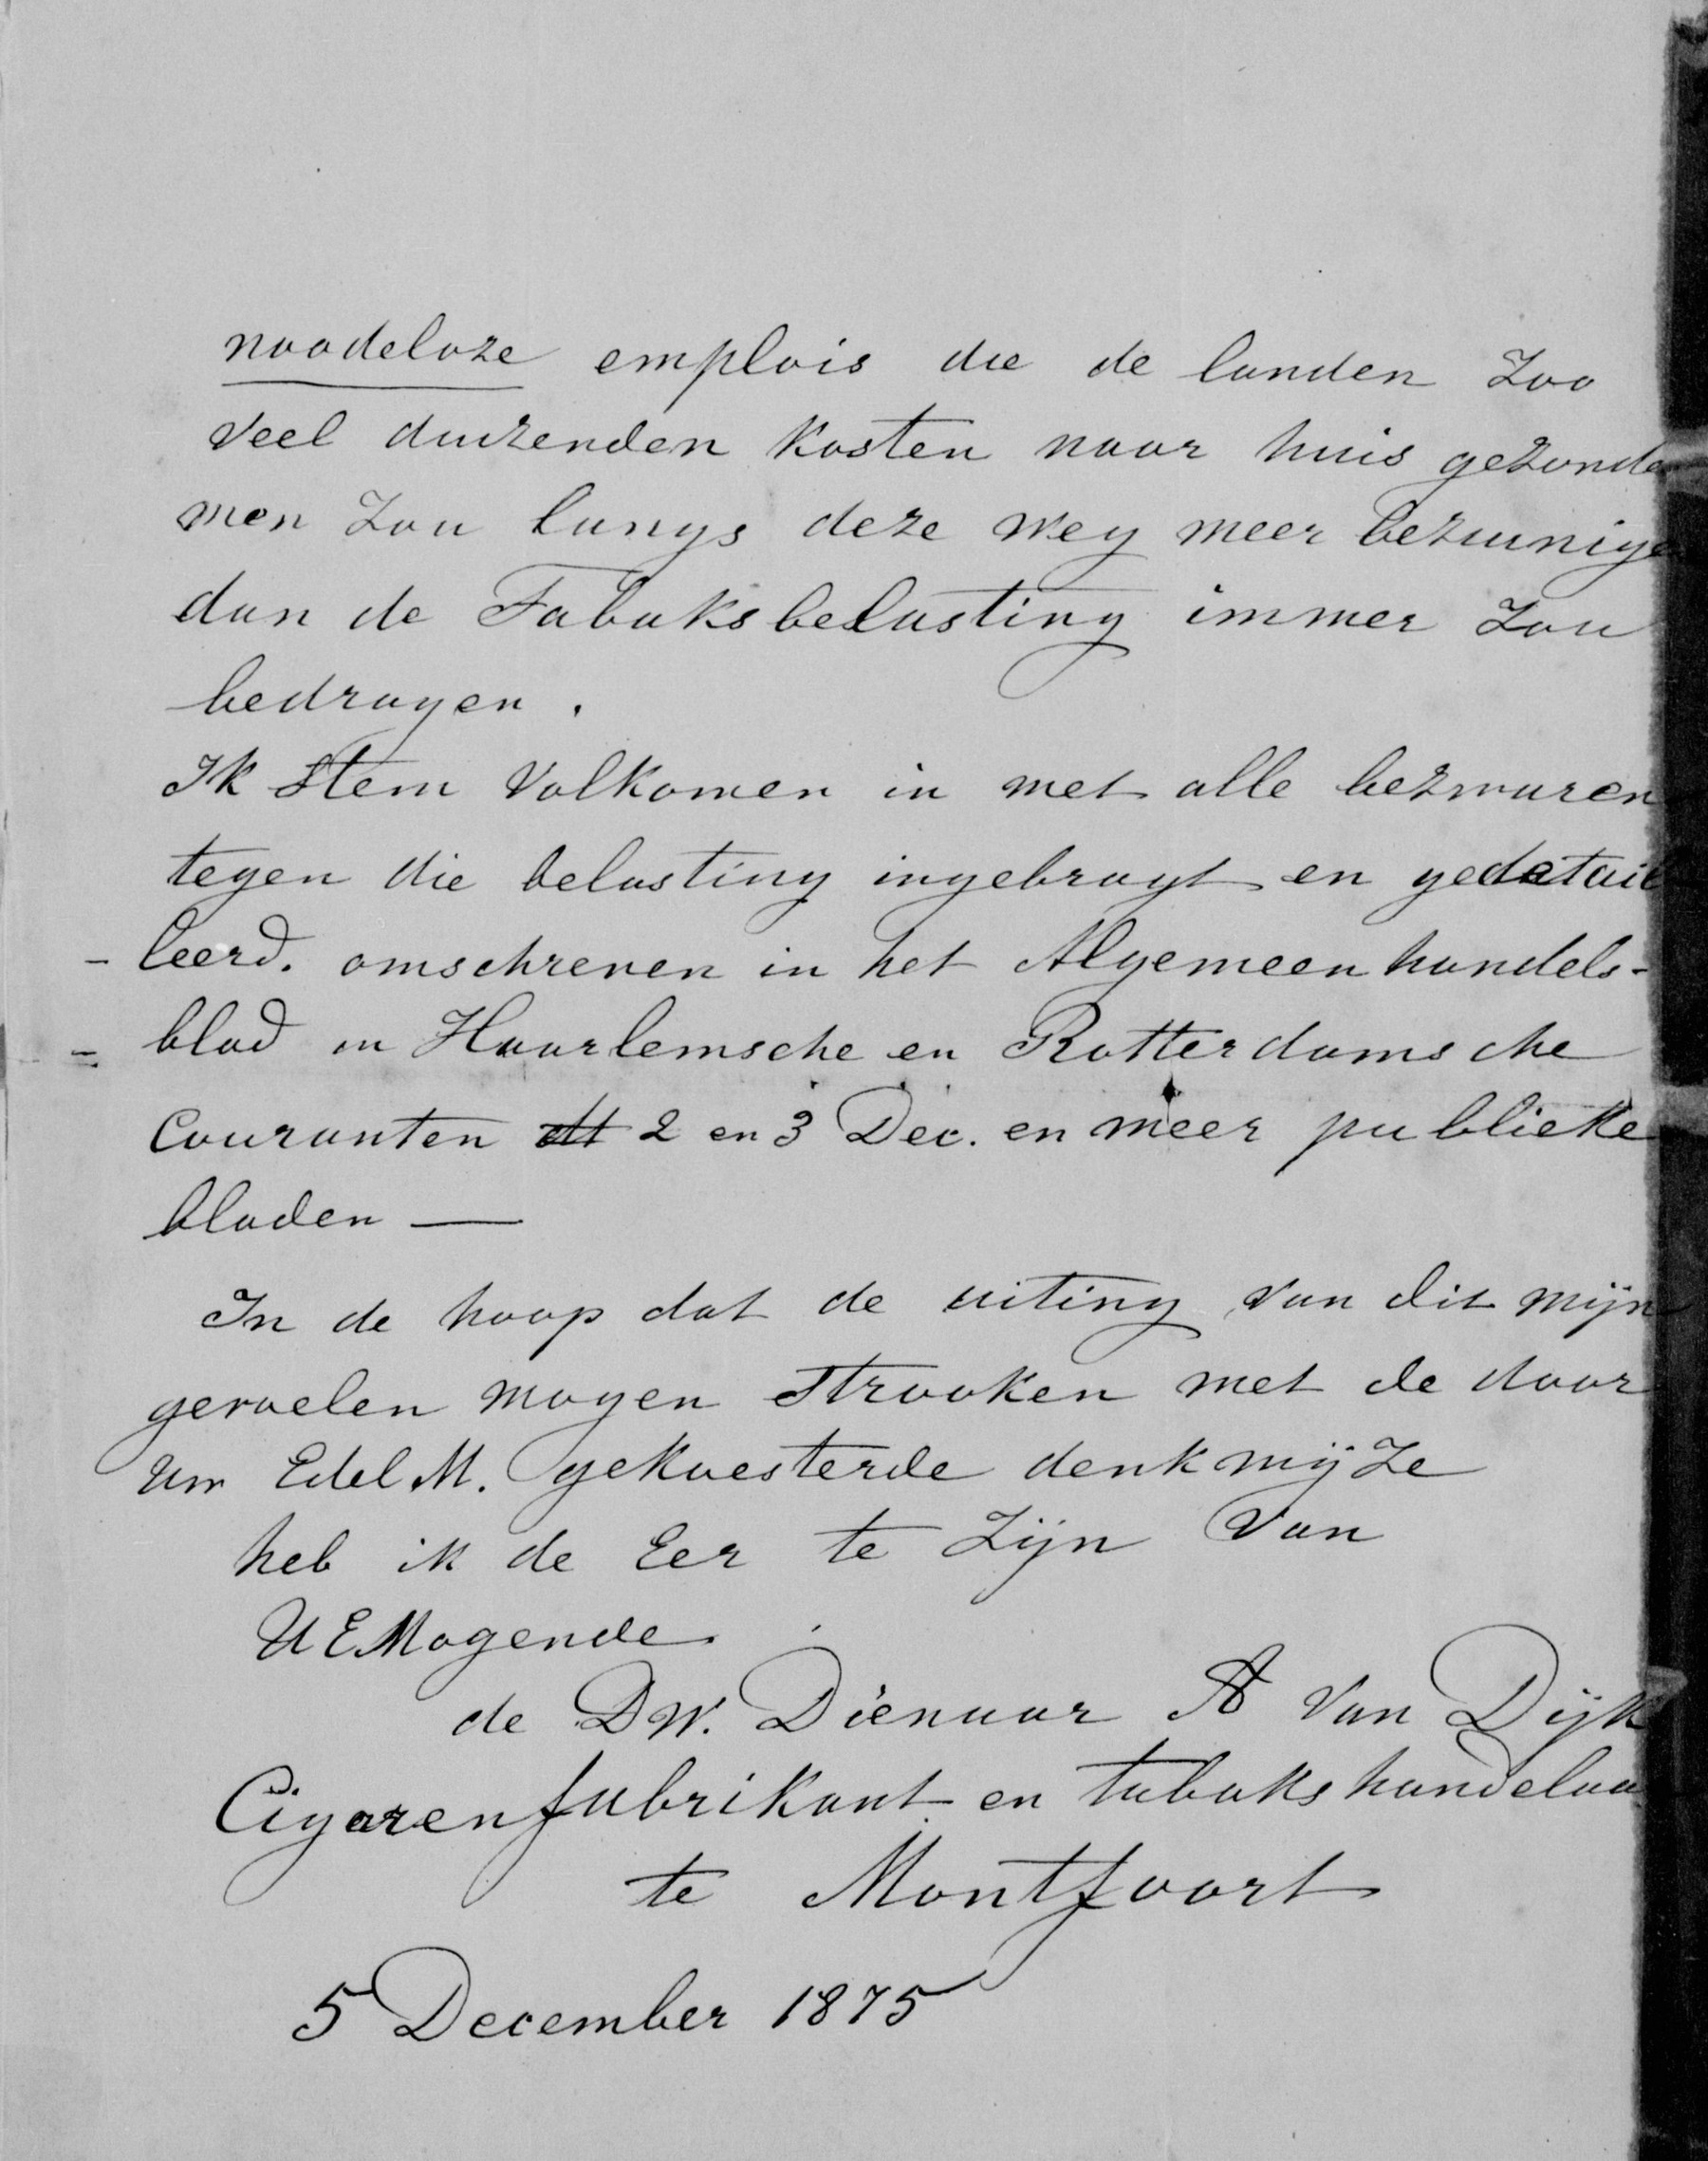 noodeloze emplois die de landen Zoo
veel duizenden Kosten naar huis gezonde
men Zou langs deze weg meer bezuinige
dan de Tabaksbelasting immer Zou
bedragen.
Ik Stem Volkomen in met alle bezwaren
tegen die belasting ingebragt en gedetail
- leerd. omschreven in het Algemeen handels-
= blad en Haarlemsche en Rotterdamsche
Couranten 2 en 3 Dec. en meer publieke
bladen —
In de hoop dat de uiting van dit mijn
gevoelen mogen Strooken met de door
Uw Edel M. gekoesterde denkwijze
heb ik de Eer te Zijn Van
UEMogende
de DW. Dienaar A Van Dijk
Cigarenfabrikant en tabakshandelaa
te Montfoort
5 December 1875